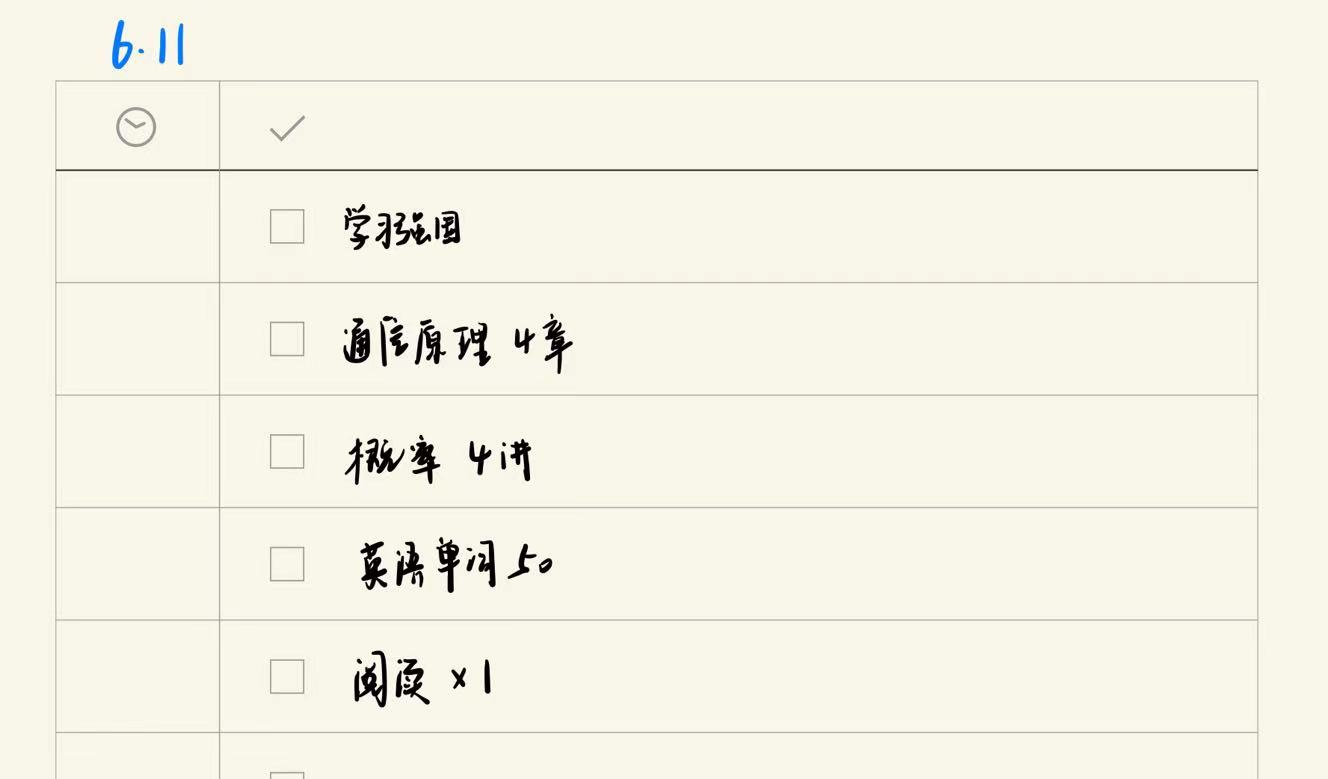 6.11
学习强国
通信原理 4章
概率 4讲
英语单词50
阅读 ×1